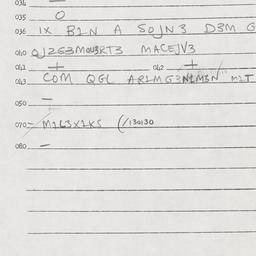 034 —
035 O
036 1X B2N A SOJN3 D3M G
040 QJ2G3MOUBRT3 MACEJV3
041 + 042 +
043 COM QGL AR1MG3N1M3N M2T
050 —
070 — M1L3X2KS (/130130
080 —